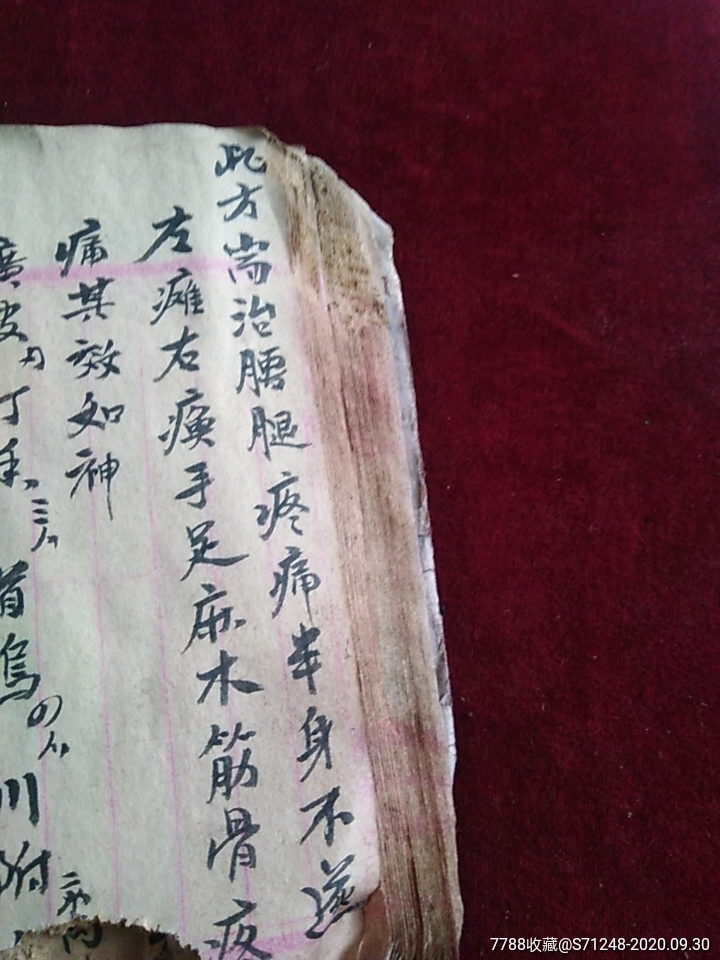 此方耑治腰腿疼痛半身不遂
左瘫右痪手足麻木筋骨疼
痛其效如神
皮
首乌
川附
7788收藏@S71248-2020.09.30